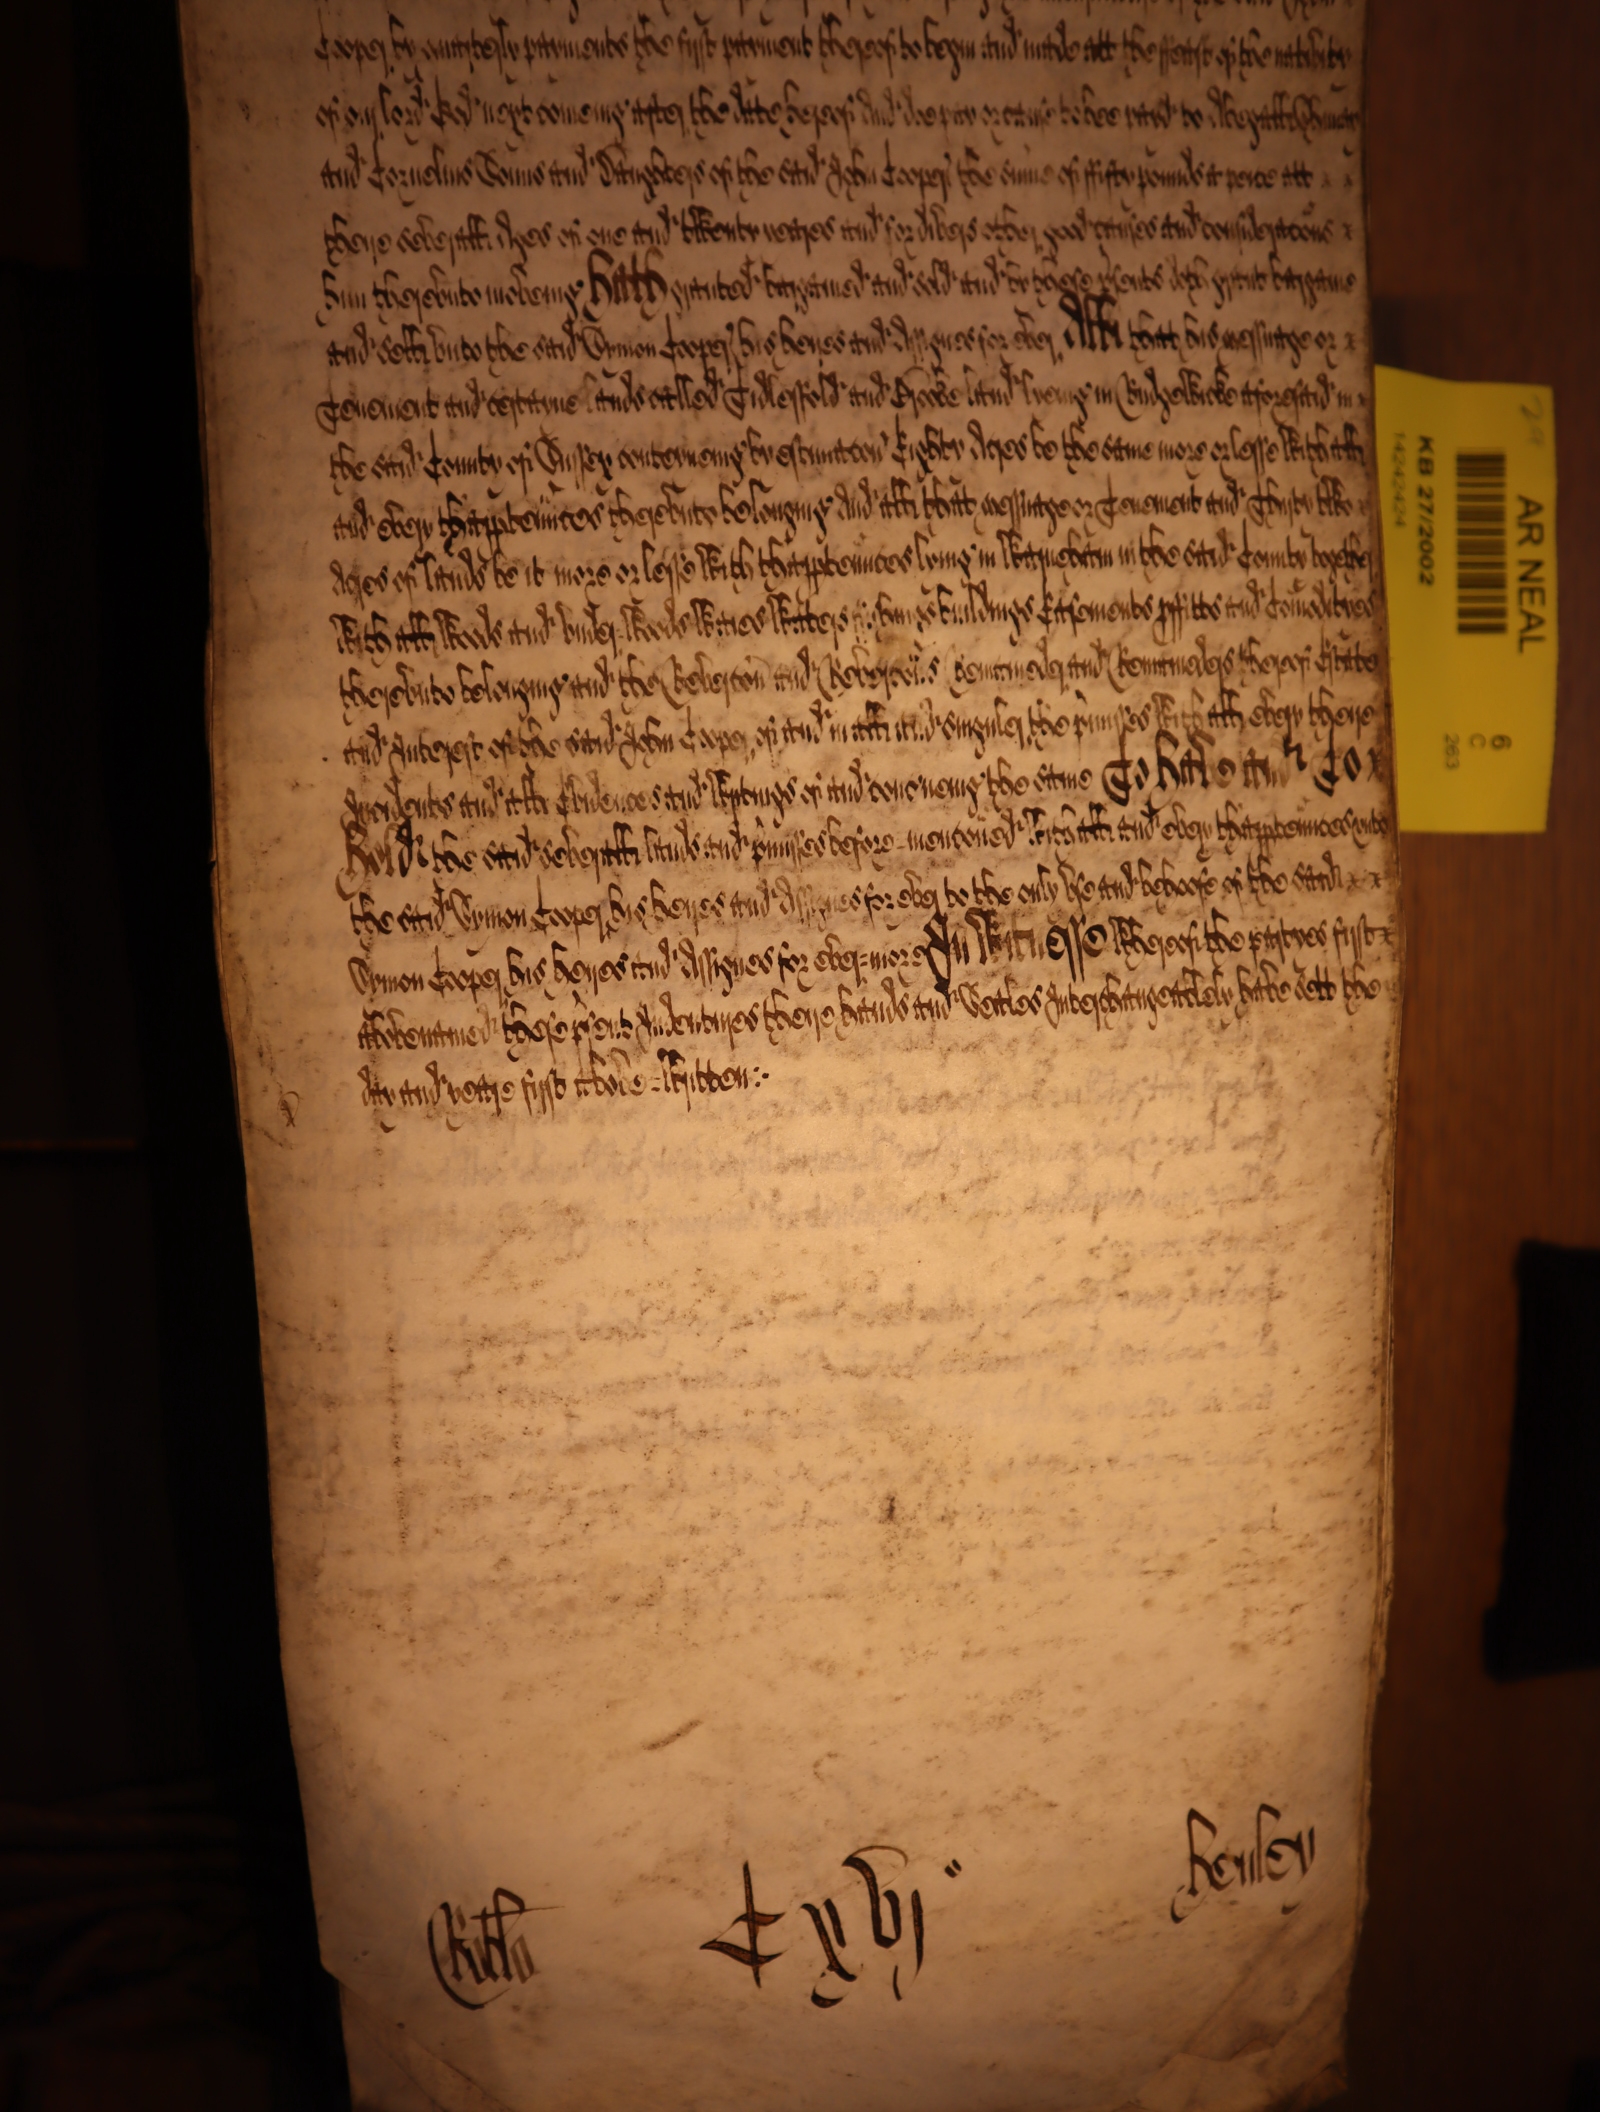 Cooper by quarterly payments the first payment thereof to begin and made att the ffeast of the nativity
of our lord God next comeing after the date hereof And doe pay or cause to bee payd to Abygall
and Cornelius Sonns and Daughters of the said John Cooper the sume of ffifty pounds a peece att x x
theire severall Ages of one and twenty yeares and for divers other good causes and consideracons x
him therevnto moveing Hath graunted bargained and sold and by these psents doth graunt bargaine
and sell vnto the said Symon Cooper his heires and Assignes for ever All that his messuage or x
Tenement and certayne lands called Tidlesfold and Broke land lyeing in Rudgwicke aforesaid in x
the said County of Sussex conteyneing by estimacon Eighty Acres be the same more or lesse with all
and every thapptennces therevnto belonging And all that messuage or Tenement and Thirty two x
Acres of lands be it more or lesse with thapptennces lying in in the said County together
with all woods and vnder-woods waies waters buildings Easements pffitts and Comodityes
therevnto belonging and the Revercon and Revercons Remainder and Remainders thereof Estate
and Interest of the said John Cooper of and in all and singuler the pmisses with all every theire
and all Evidences and wrytings of and concrneing the same To have and To x
Hold the said severall lands and pmisses before-menconed with all and every thapptennces vnto
the said Symon Cooper his heires and Assignes for ever to the only vse and behoofe of the said x x
Symon Cooper his heires and Assignes for ever=more In Witnesse whereof the partyes first x
abovenamed these psent Indentures theire hands and Seales Interchangeablely have sett the
day and yeare first above-written:-
Rotlo
Cxvj
Henley
AR NEAL
KB 27/2002
14242424
29
6
C
263